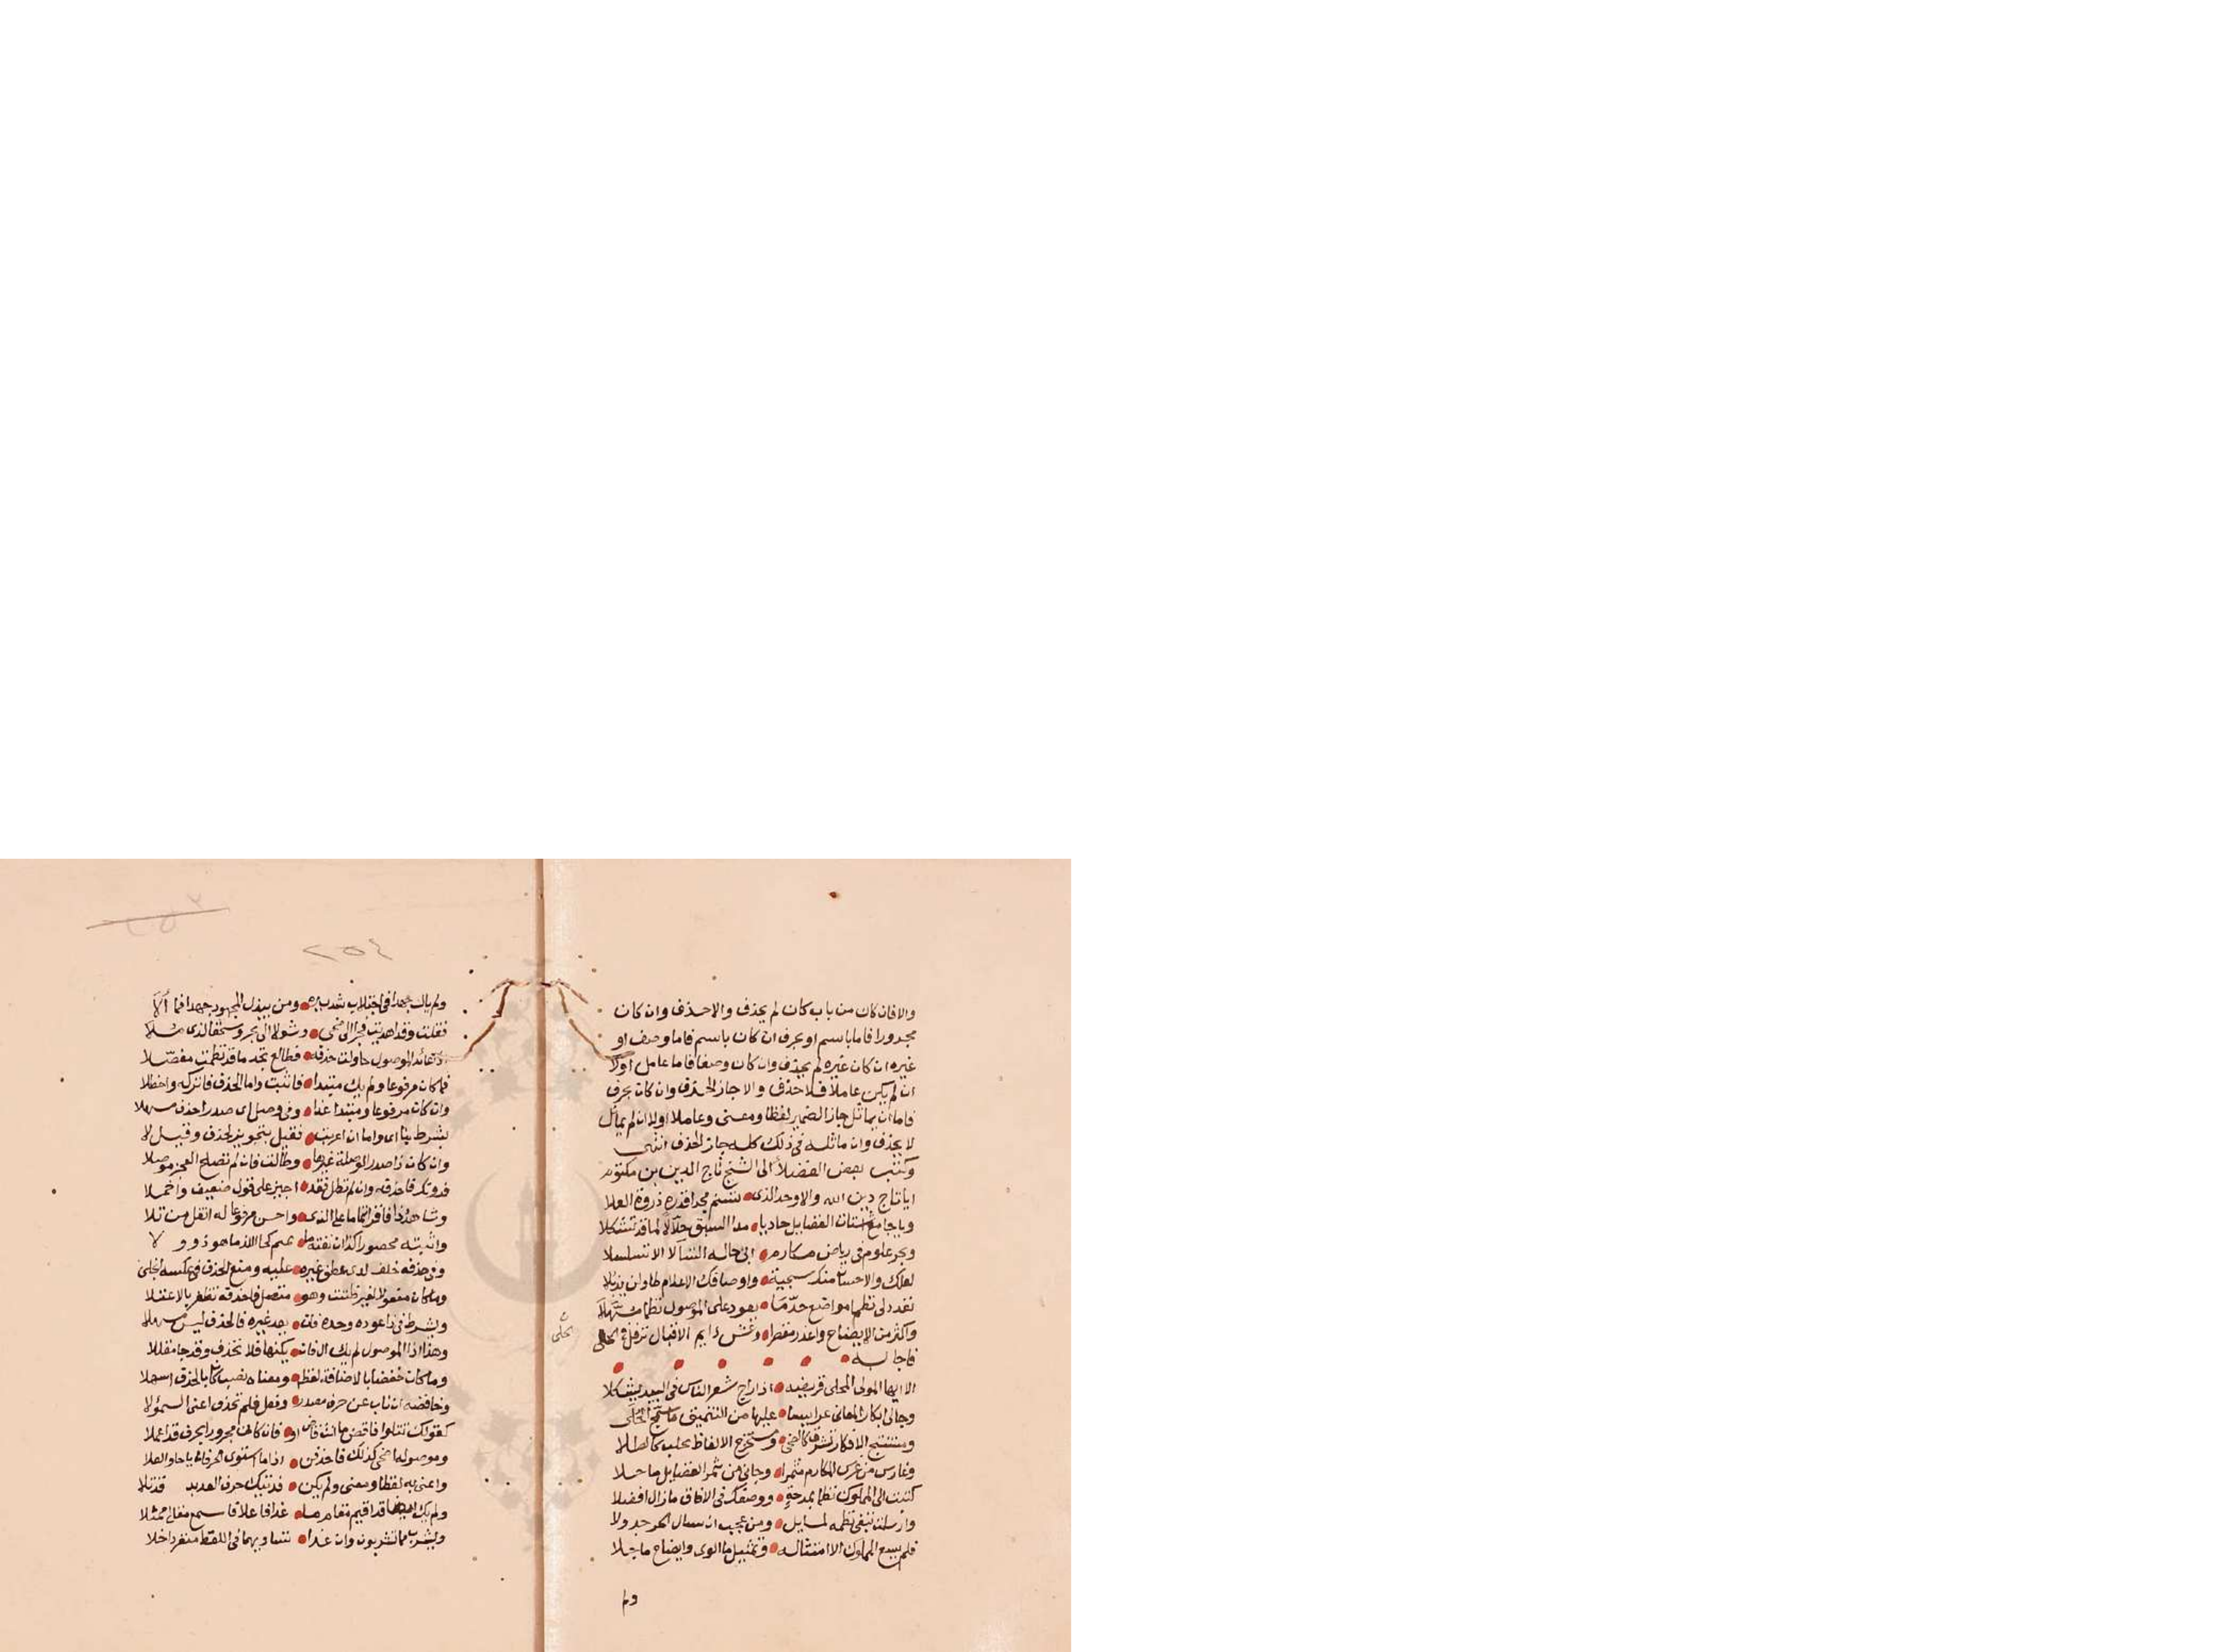 والا فان كان من باب كان لم يحذف والا حذف وان كان
مجرورا فاما باسم او بحرف ان كان باسم فاما وصف او
غيره ان كان غيره لم يحذف وان كان وصفا فاما عامل اولا
ان لم يكن عاملا فلا حذف والا جاز الحذف وان كان بحرف
فاما ان يماثل جاز الضمير لفظا ومعنى وعاملا اولا ان لم يماثل
لا يحذف وان ماثله في ذلك كله جاز الحذف انتهى
وكتب بعض الفضلاء الى الشيخ تاج الدين بن مكتوم
ايا تاج دين الله والاوحد الذى تسنم مجدا قدره ذروة العلا
ويا جامع اشتات الفضايل حاويا مدا السبق حلالا لما قد تشكلا
وبحر علوم في رياض مكارم ابى حاله التسآل الا تسلسلا
لعلك والاحسان منك سجية واوصافك الاعلام طاولن يذبلا
تعدد لى نظما مواضع حذف ما يعود على الموصول نظما مسهلا
واكثر من الايضاح واعذر مقصرا وعش دايم الاقبال ترفل في الحلى
فاجابه
الا ايها المولى المحلى قريضه اذا راح شعر الناس في البيد يشكلا
وجالى ابكار المعانى عرايسا عليها من التنميق ما سمج الحلى
ومستنتج الافكار تشرق كالضحى ومستخرج الالفاظ تحلب كالطلا
وغارس من غرس المكارم مثمرا وجانى من ثمر الفضايل ما حلا
كتبت الى المملوك نظما بمدحة ووصفك في الافاق ما زال افضلا
وارسلت تبغى نظمه لمسايل ومن عجب ان يسال البحر جدولا
فلم يسع المملوك الا امتثاله وتمثيل ما الوى وايضاح ما جلا
ولم
٢٥٤
ولم يال جهدا في اجتلاب شديده ومن يبذل المجهود جهدا فما ألا
فقلت وقد اهديت فجرا الى ضحى وشولا الى بحر وسحقا لذى ملا
اذ عائد الموصول حاولت حذفه فطالع تجد ما قد نظمت مفصلا
فما كان مرفوعا ولم يك مبتدا فاثبت واما الحذف فاتركه واحظلا
وان كان مرفوعا ومبتدا غدا وفي وصل اى صدرا احذف مسهلا
بشرط بنا اى واما ان اعربت فقيل بتجويز الحذف وقيل لا
وان كان ذا صدر الوصلة غيرها وطالت فان لم تصلح العجز موصلا
فدونك فاحذفه وان لم تطل فقد اجيز على قول ضعيف واخملا
وشاهد ذا فاقرا تماما على الذى واحسن مرفوعا له انقل من تلا
واثبته محصورا كذا ان نفته ما لا
وفي حذفه خلف لدى عطف غيره عليه ومنع الحذف في عكسه انجلى
وما كان مفعولا لغير ظننت وهو متصل فاحذفه تظفر بالاعتلا
وبشرط في ذا عوده وحده فان يعد غيره فالحذف ليس مسهلا
وهذا اذا الموصول لم يك ال فان يكنها فلا تحذف وقد جا مقللا
وما كان خفضا بالاضافة لفظه ومعناه نصب كان بالحذف اسهلا
وخافضه ان ناب عن حرف مصدر وفعل فلم تحذف اعنى السمؤلا
كقولك تتلوا فاقض ما انت قاض او فان كان مجرورا بحرف قد اعملا
وموصوله اضحى كذلك فاحذفن اذا ما استوى الحرفان يا حاوى العلا
واعنى به لفظا ومعنى ولم يكن فدتيك حرف العديد قد تلا
ولم يك ايضا قد اقيم مقام ما غدا فاعلا فاسمع مقالى ممثلا
ويشرب مما تشربون وان غدا تساويهما في اللفظ منفردا خلا